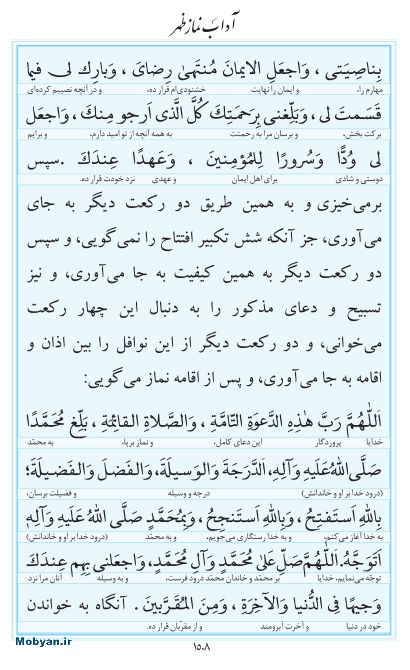 آداب نماز ظهر
بِناصِیَتی ، وَاجعَلِ الایمانَ مُنتَهیٰ رِضایَ ، وَبارِك لی فیما
مهارم را، و ایمان را نهایت خشنودی‌ام قرار ده، و در آنچه نصیبم کرده‌ای
قَسَمتَ لی ، وَبَلِّغنی بِرَحمَتِكَ كُلَّ الَّذی اَرجو مِنكَ ، وَاجعَل
برکت بخش، و برسان مرا به رحمتت به همه آنچه از تو امید دارم، و برایم
لی وُدًّا وَسُرورًا لِلمُؤمِنینَ ، وَعَهدًا عِندَكَ .سپس
دوستی و شادی برای اهل ایمان و عهدی نزد خودت قرار ده.
برمی‌خیزی و به همین طریق دو رکعت دیگر به جای
می‌آوری، جز آنکه شش تکبیر افتتاح را نمی‌گویی، و سپس
دو رکعت دیگر به همین کیفیت به جا می‌آوری، و نیز
تسبیح و دعای مذکور را به دنبال این چهار رکعت
می‌خوانی، و دو رکعت دیگر از این نوافل را بین اذان و
اقامه به جا می‌آوری، و پس از اقامه نماز می‌گویی:
اَللّٰهُمَّ رَبَّ هٰذِهِ الدَّعوَةِ التّامَّةِ ، وَالصَّلاةِ القائِمَةِ ، بَلِّغ مُحَمَّدًا
خدایا پروردگار این دعای کامل، و نماز برپا، به محمّد
صَلَّی اللهُ عَلَیهِ وَآلِهِ، الدَّرَجَةَ وَالوَسیلَةَ، وَالفَضلَ وَالفَضیلَةَ؛
(درود خدا بر او و خاندانش) درجه و وسیله و فضیلت برسان،
بِاللهِ اَستَفتِحُ، وَبِاللهِ اَستَنجِحُ، وَبِمُحَمَّدٍ صَلَّی اللهُ عَلَیهِ وَآلِهِ
به خدا آغاز می‌کنم، و به خدا رستگاری می‌جویم، و به محمّد (درود خدا بر او و خاندانش)
اَتَوَجَّهُ. اَللّٰهُمَّ صَلِّ عَلیٰ مُحَمَّدٍ وَآلِ مُحَمَّدٍ، وَاجعَلنی بِهِم عِندَكَ
توجّه می‌نمایم، خدایا بر محمّد و خاندان محمّد درود فرست، و به وسیله آنان مرا نزد
وَجیهًا فِی الدُّنیا وَالآخِرَةِ ، وَمِنَ المُقَرَّبینَ . آنگاه به خواندن
خود در دنیا و آخرت آبرومند و از مقرّبان قرار ده.
Mobyan.ir
۱۵۰۸